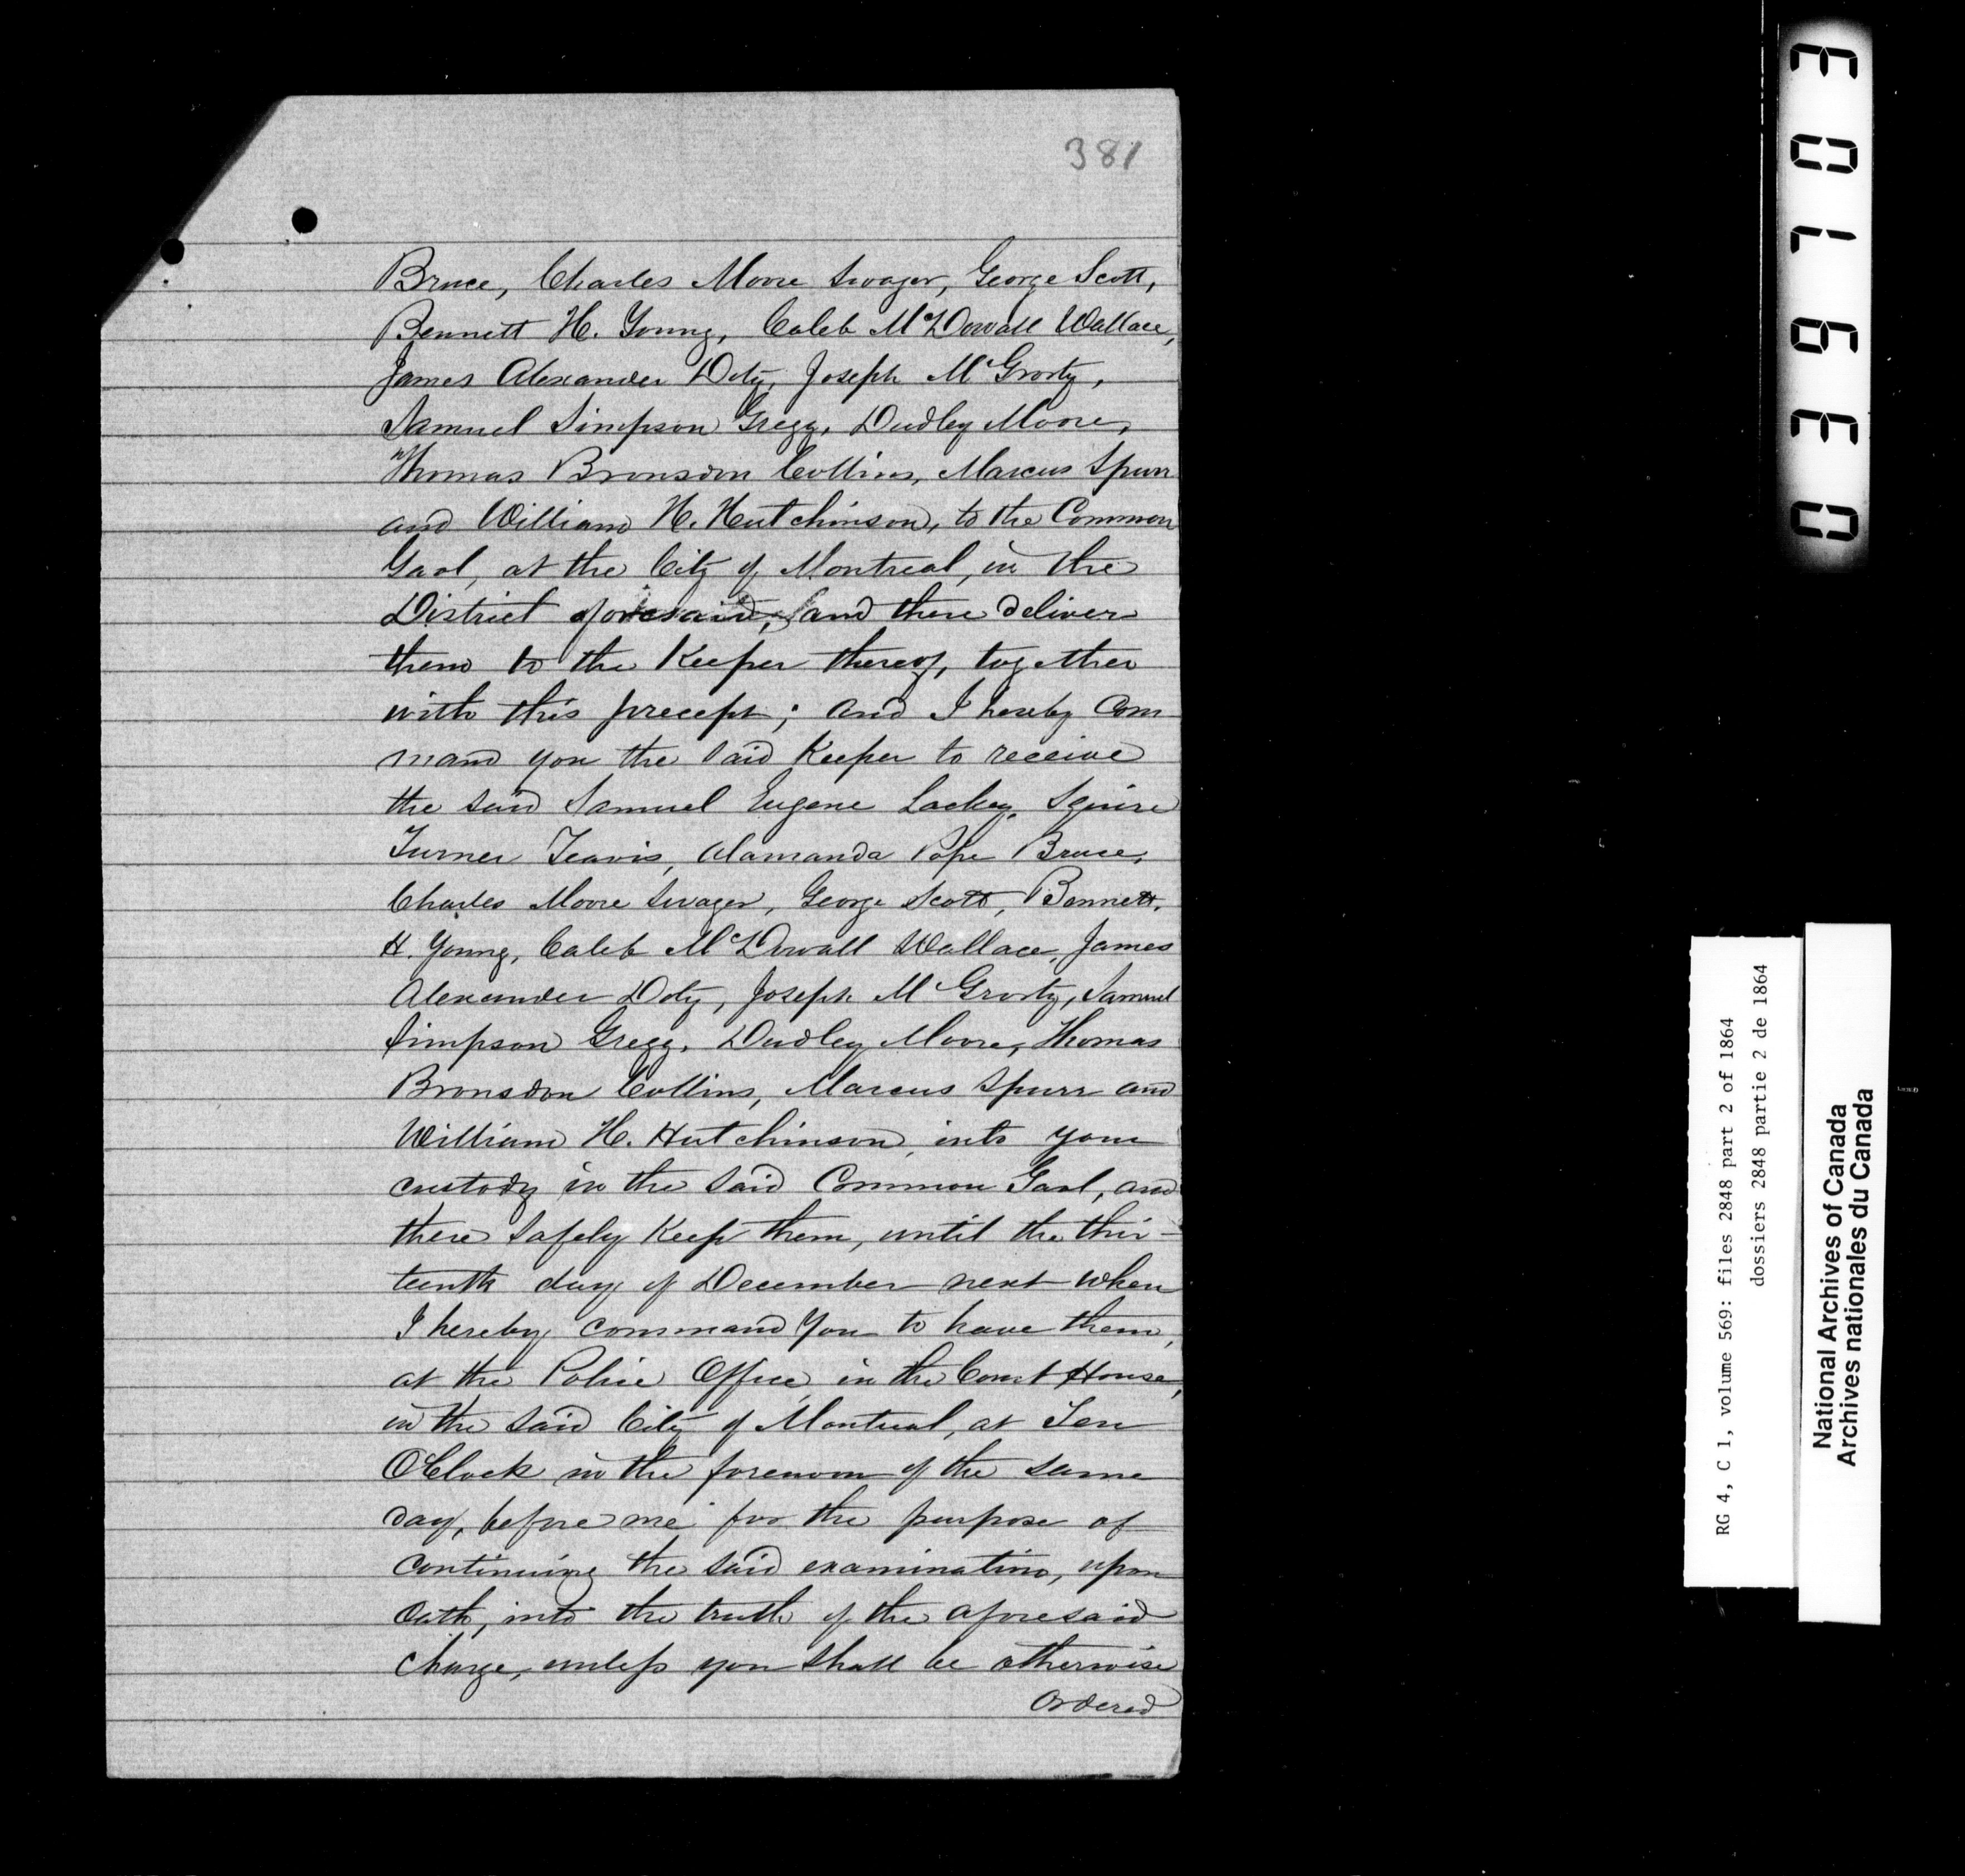 381
Bruce, Charles Moore Swager, George Scott,
Bennett H. Young, Caleb McDowall Wallace,
James Alexander Doty, Joseph McGrorty,
Samuel Simpson Gregg, Dudley Moore,
Thomas Bronsdon Collins, Marcus Spurr
and William H. Hutchinson, to the Common
Gaol, at the City of Montreal, in the
District aforesaid, and there deliver
them to the Keeper thereof, together
with this precept; and I hereby Com-
mand you the said Keeper to receive
the said Samuel Eugene Lackey, Squire
Turner Teavis, Alamanda Pope Bruce,
Charles Moore Swager, George Scott, Bennett
H. Young, Caleb McDowall Wallace, James
Alexander Doty, Joseph McGrorty, Samuel
Simpson Gregg, Dudley Moore, Thomas
Bronsdon Collins, Marcus Spurr and
William H. Hutchinson, into your
custody in the said Common Gaol, and
there safely Keep them, until the thir-
teenth day of December next when
I hereby command You to have them,
at the Police Office, in the Court House,
in the said City of Montreal, at Ten
OClock in the forenoon of the same
day, before me for the purpose of
continuing the said examination, upon
Oath, into the truth of the aforesaid
Charge, unless you shall be otherwise
Ordered
037910 3
RG 4, C 1, volume 569: files 2848 part 2 of 1864
dossiers 2848 partie 2 de 1864
National Archives of Canada
Archives nationales du Canada